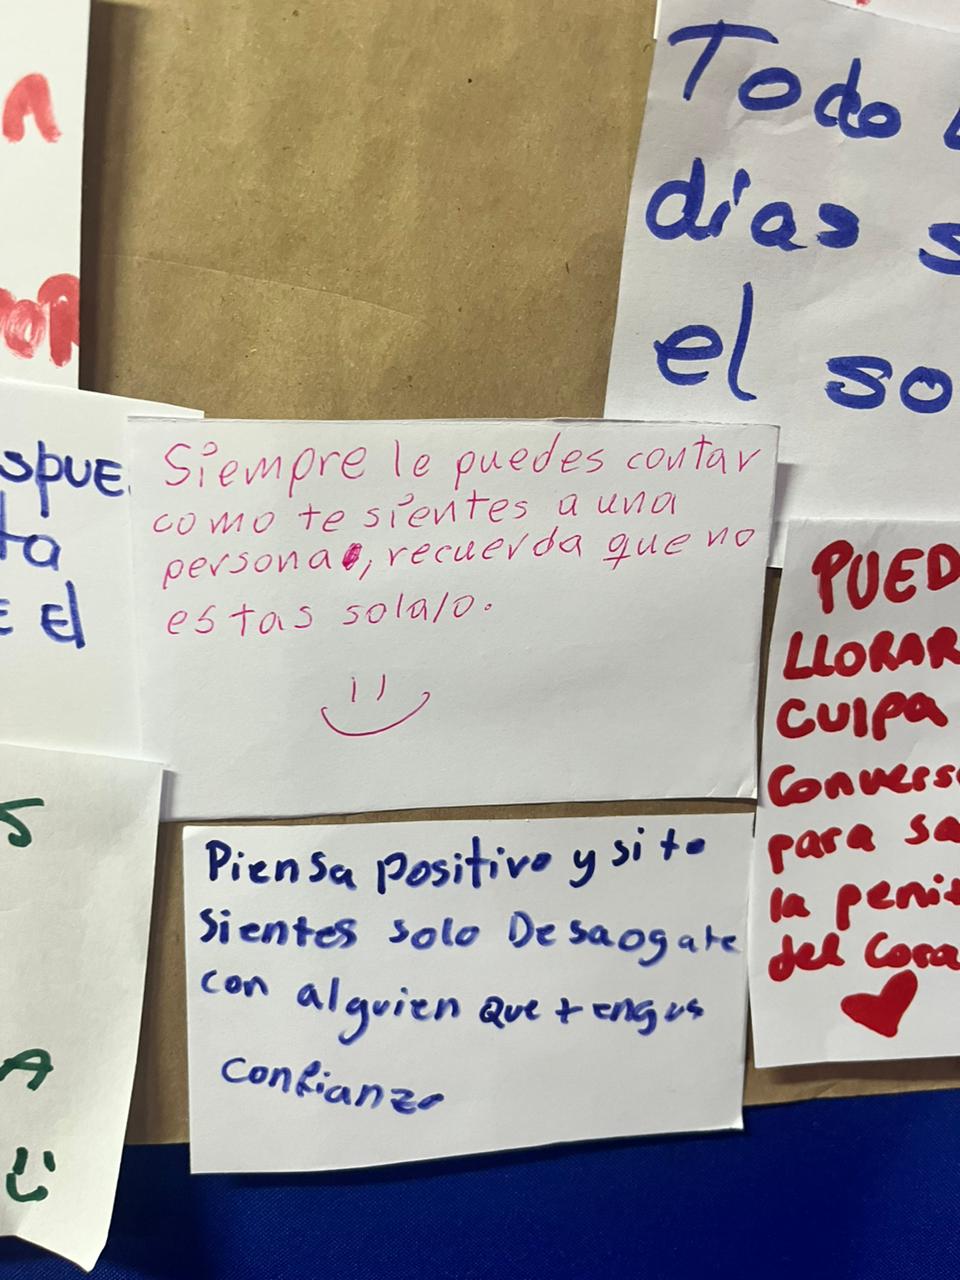 A
OR
Todo
días s
el so
spue
ta
E El
Siempre le puedes contar
como te sientes a una
persona, recuerda que no
estas sola/o.
PUED
LLORAR
culpa
Convers
para sa
la penit
del Cora
S
A
Piensa positivo y si te
sientes solo Desaogate
con alguien que tengas
Confianza